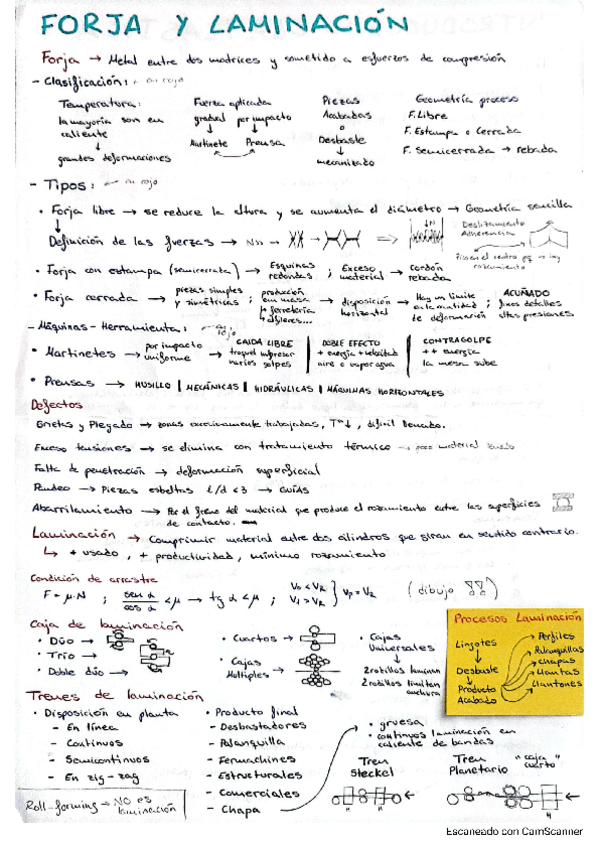 FORJA Y LAMINACIÓN
Forja → Metal entre dos matrices y sometido a esfuerzos de compresión
- Clasificación: + en rojo
Temperatura: la mayoría son en caliente ↓ grandes deformaciones
Fuerza aplicada gradual por impacto Martinete Prensa
Piezas Acabadas o Desbaste ↓ mecanizado
Geometría proceso F. Libre F. Estampa o Cerrada F. Semicerrada → rebada
- Tipos: en rojo
• Forja libre → se reduce la altura y se aumenta el diámetro → Geometría sencilla
Definición de las fuerzas →
Deslizamiento
Adherencia
• Forja con estampa (semicerrada) → Esquinas redondas ; Exceso material → cordón rebada
• Forja cerrada → piezas simples y simétricas ; producción en masa
disposición horizontal ; Hay un límite en la cantidad de deformación ; ACUÑADO finos detalles altas presiones
- Máquinas - Herramienta: en rojo
• Martinetes → por impacto uniforme
CAIDA LIBRE varios golpes
DOBLE EFECTO + energía + velocidad aire o vapor agua
CONTRAGOLPE ++ energía la mesa sube
• Prensas → HUSILLO | MECÁNICAS | HIDRÁULICAS | MÁQUINAS HORIZONTALES
Defectos
Grietas y Plegado → zonas excesivamente trabajadas, Tª ↓, difícil llenado.
Exceso tensiones → se elimina con tratamiento térmico →
Falta de penetración → deformación superficial
Pandeo → Piezas esbeltas l/d < 3 → GUÍAS
Abarrilamiento → Por el freno del material que produce el rozamiento entre las superficies
de contacto.
Laminación → Comprimir material entre dos cilindros que giran en sentido contrario.
↳ + usado, + productividad, mínimo rozamiento
Condición de arrastre
F = μ·N ; sen α / cos α < μ → tg α < μ ; V₀ < VR V₁ > VR } Vp = VR (dibujo)
Caja de laminación
• Dúo →
• Trío →
• Doble dúo →
• Cuartos →
• Cajas Múltiples →
• Cajas Universales ↓ 2 rodillos laminan 2 rodillos limitan anchura
Procesos Laminación
Lingotes ↓ Desbaste ↓ Producto Acabado
Perfiles
Palanquillas
chapas
Llantas
Llantones
Trenes de laminación
• Disposición en planta
- En línea
- Continuos
- Semicontinuos
- En zig-zag
• Producto final
- Desbastadores
- Palanquilla
- Fermachines
- Estructurales
- Comerciales
- Chapa
• gruesa
• continuos laminación en caliente de bandas
Tren Steckel
Tren Planetario
"caja cuarto"
Roll-forming → NO es laminación
Escaneado con CamScanner